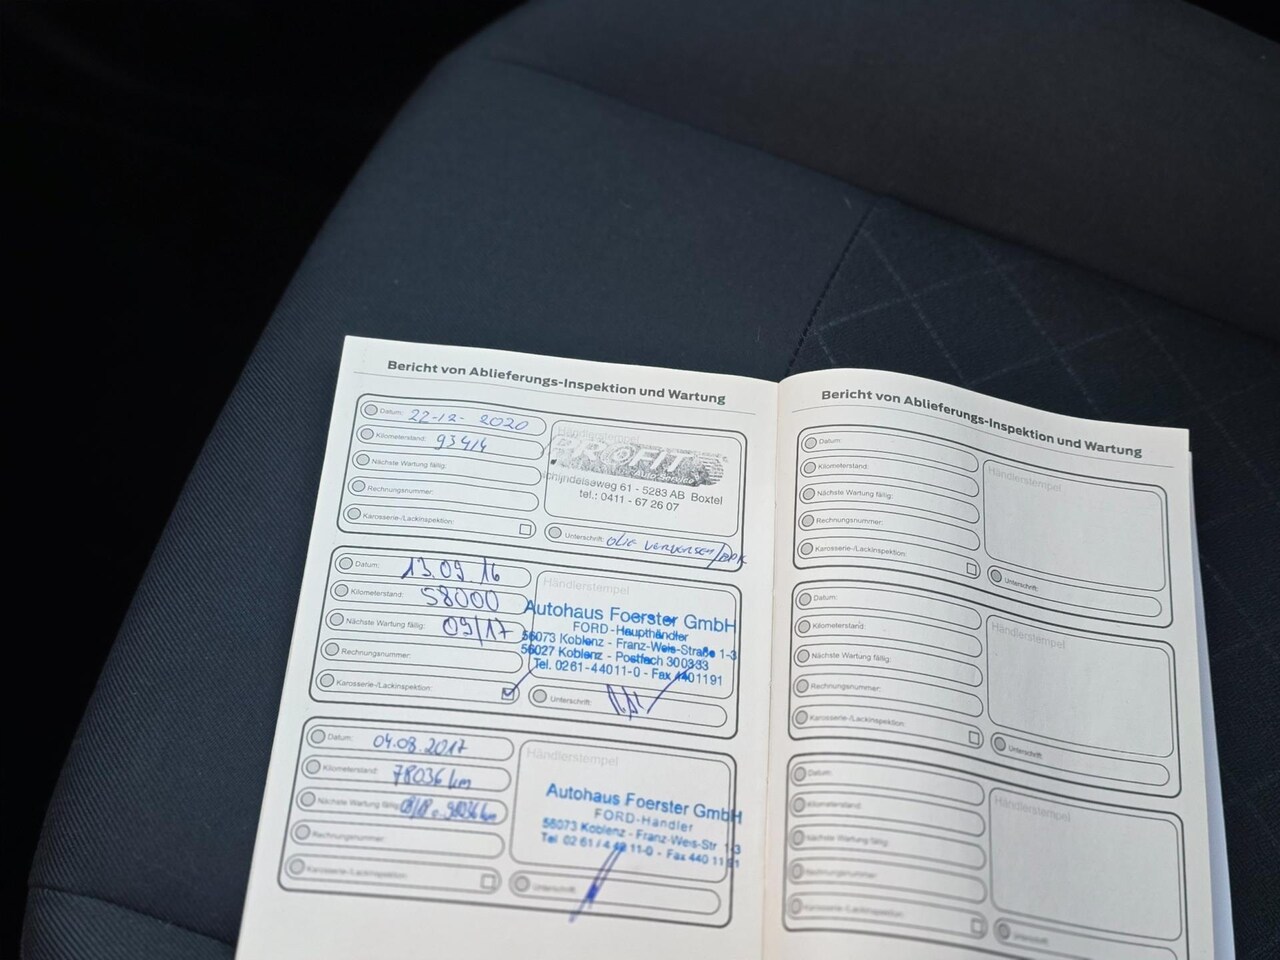 Bericht von Ablieferungs-Inspektion und Wartung
Datum: 22-12-2020
Kilometerstand: 93414
Nächste Wartung fällig:
Rechnungsnummer:
Karosserie-/Lackinspektion:
Händlerstempel
PROFIT
Auto Service
chijndelseweg 61 - 5283 AB Boxtel
tel.: 0411 - 67 26 07
Unterschrift: OLIE VERVERSEN/
Datum: 13.09.16
Kilometerstand: 58000
Nächste Wartung fällig: 09/17
Rechnungsnummer:
Karosserie-/Lackinspektion:
Händlerstempel
Autohaus Foerster GmbH
FORD-Haupthändler
56073 Koblenz - Franz-Weis-Straße 1-3
56027 Koblenz - Postfach 300333
Tel. 0261-44011-0 - Fax 4401191
Unterschrift:
Datum: 04.08.2017
Kilometerstand: 78036 km
Nächste Wartung fällig: 08/18 o. 98036 km
Rechnungsnummer:
Karosserie-/Lackinspektion:
Händlerstempel
Autohaus Foerster GmbH
FORD-Händler
56073 Koblenz - Franz-Weis-Str 1-3
Tel 02 61 / 4 40 11-0 - Fax 440 11 91
Unterschrift:
Bericht von Ablieferungs-Inspektion und Wartung
Datum:
Kilometerstand:
Nächste Wartung fällig:
Rechnungsnummer:
Karosserie-/Lackinspektion:
Händlerstempel
Unterschrift:
Datum:
Kilometerstand:
Nächste Wartung fällig:
Rechnungsnummer:
Karosserie-/Lackinspektion:
Händlerstempel
Unterschrift:
Datum:
Kilometerstand:
Nächste Wartung fällig:
Rechnungsnummer:
Karosserie-/Lackinspektion:
Händlerstempel
Unterschrift: